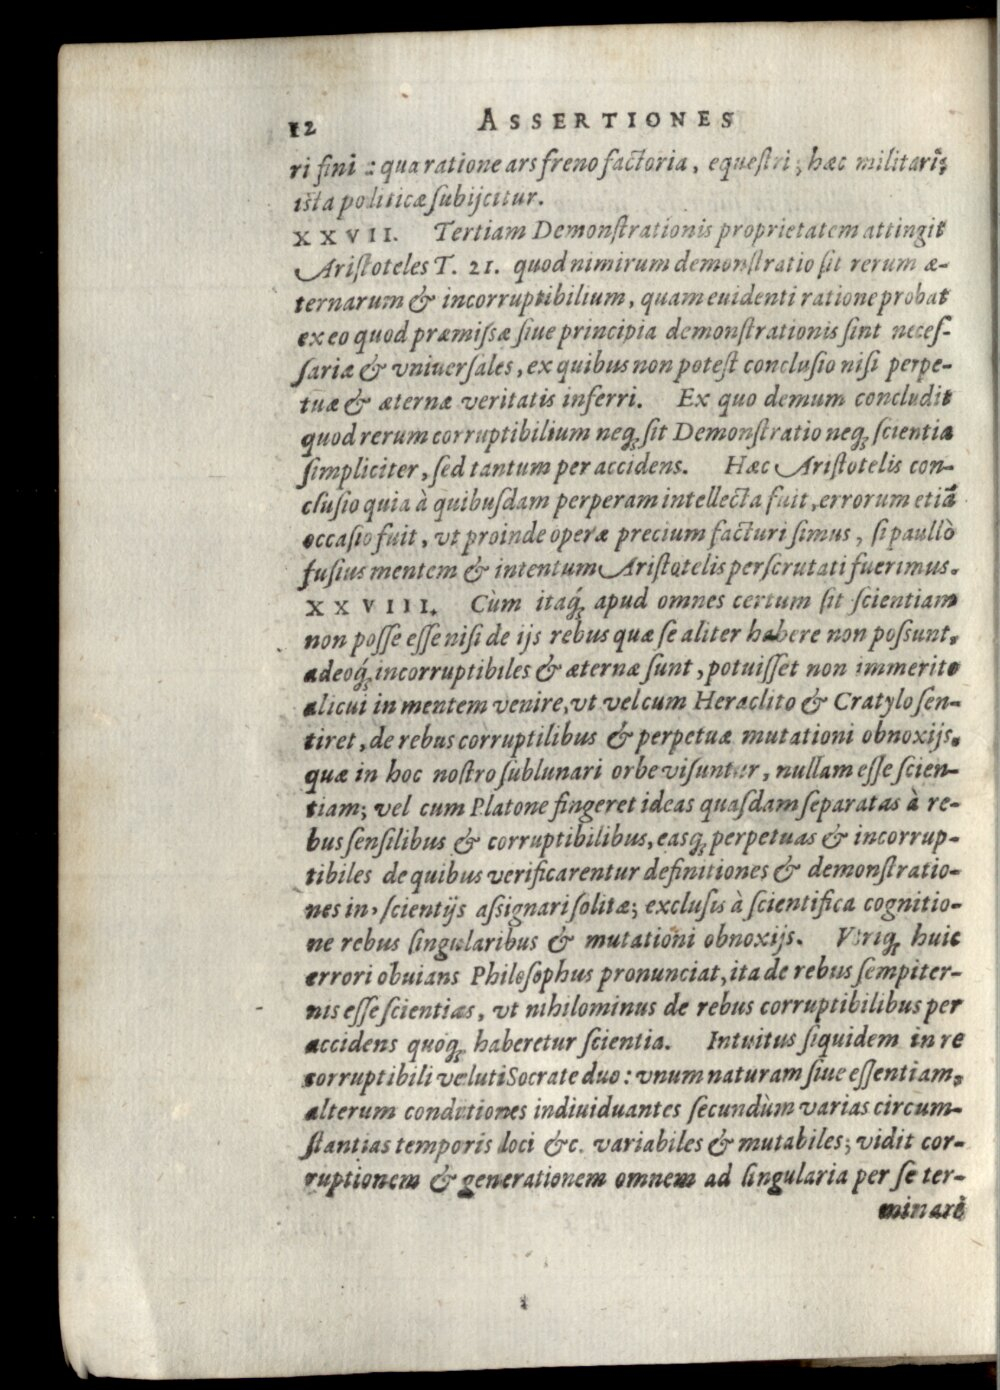 12 ASSERTIONES
ri fini : qua ratione ars freno factoria, equeſtri; hæc militari;
iſta politicæ ſubijcitur.
XXVII. Tertiam Demonſtrationis proprietatem attingit
Ariſtoteles T. 21. quod nimirum demonſtratio ſit rerum æ-
ternarum & incorruptibilium, quam euidenti ratione probat
ex eo quod præmiſsæ ſiue principia demonſtrationis ſint neceſ-
ſariæ & vniuerſales, ex quibus non poteſt concluſio niſi perpe-
tuæ & æternæ veritatis inferri. Ex quo demum concludit
quod rerum corruptibilium neq; ſit Demonſtratio neq; ſcientia
ſimpliciter, ſed tantum per accidens. Hæc Ariſtotelis con-
cluſio quia à quibuſdam perperam intellecta fuit, errorum etiã
occaſio fuit, vt proinde operæ precium facturi ſimus, ſi paullò
fuſius mentem & intentum Ariſtotelis perſcrutati fuerimus.
XXVIII. Cùm itaq́; apud omnes certum ſit ſcientiam
non poſſe eſſe niſi de ijs rebus quæ ſe aliter habere non poſsunt,
adeoq́; incorruptibiles & æternæ ſunt, potuiſſet non immerito
alicui in mentem venire, vt vel cum Heraclito & Cratylo ſen-
tiret, de rebus corruptilibus & perpetuæ mutationi obnoxijs,
quæ in hoc noſtro ſublunari orbe viſuntur, nullam eſſe ſcien-
tiam; vel cum Platone fingeret ideas quaſdam ſeparatas à re-
bus ſenſilibus & corruptibilibus, easq; perpetuas & incorrup-
tibiles de quibus verificarentur definitiones & demonſtratio-
nes in ſcientijs aſsignari ſolitæ; excluſis à ſcientifica cognitio-
ne rebus ſingularibus & mutationi obnoxijs. Vtriq; huic
errori obuians Philoſophus pronunciat, ita de rebus ſempiter-
nis eſſe ſcientias, vt nihilominus de rebus corruptibilibus per
accidens quoq; haberetur ſcientia. Intuitus ſiquidem in re
corruptibili veluti Socrate duo: vnum naturam ſiue eſſentiam,
alterum conditiones indiuiduantes ſecundùm varias circum-
ſtantias temporis loci &c. variabiles & mutabiles; vidit cor-
ruptionem & generationem omnem ad ſingularia per ſe ter-
minari